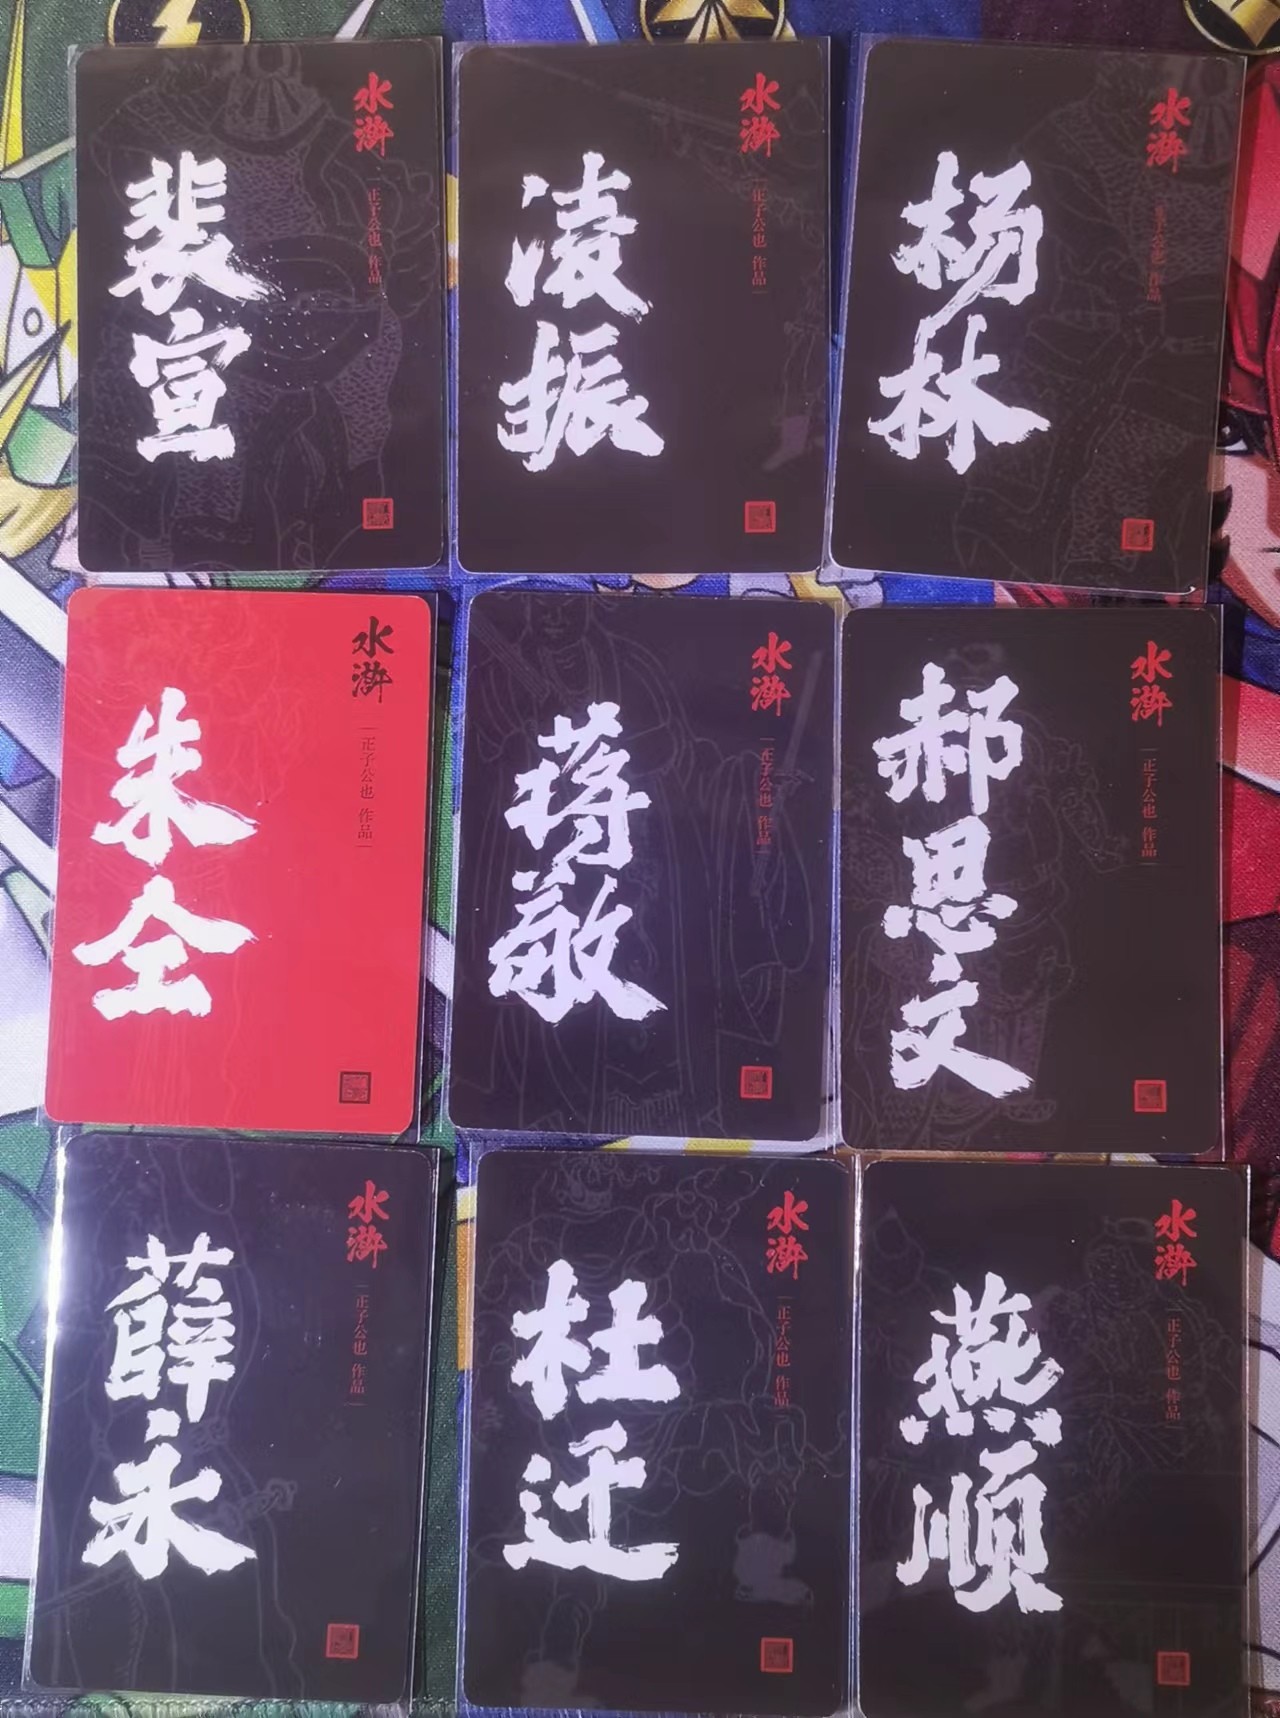 水浒
正子公也 作品
裴宣
水浒
正子公也 作品
凌振
水浒
正子公也 作品
杨林
水浒
正子公也 作品
朱仝
水浒
正子公也 作品
蒋敬
水浒
正子公也 作品
郝思文
水浒
正子公也 作品
薛永
水浒
正子公也 作品
杜迁
水浒
正子公也 作品
燕顺